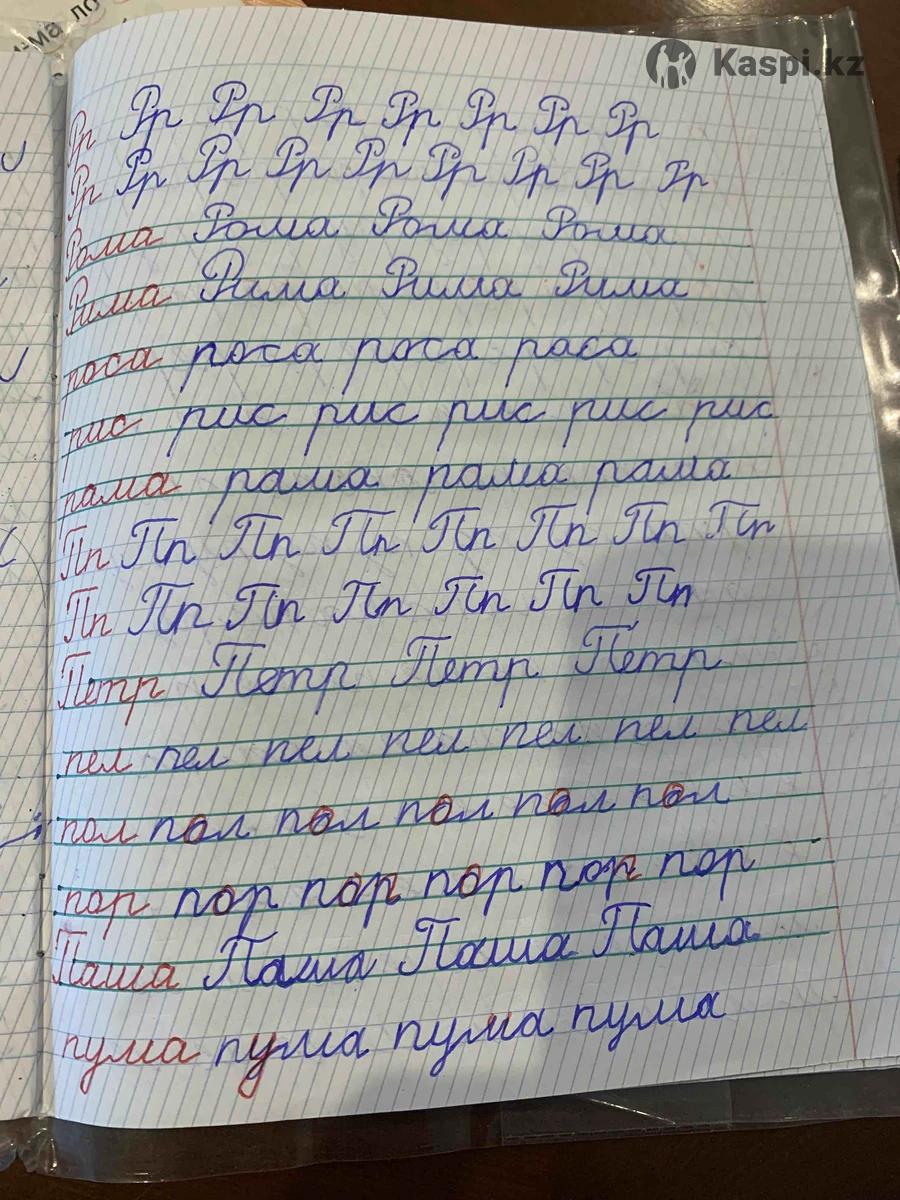 ма по
Kaspi.kz
Рр Рр Рр Рр Рр Рр Рр Рр
Рр Рр Рр Рр Рр Рр Рр Рр Рр
Рома Рома Рома Рома
Рима Рима Рима Рима
роса роса роса раса
рис рис рис рис рис рис
рама рама рама рама
Пп Пп Пп Пп Пп Пп Пп Пп
Пп Пп Пп Пп Пп Пп Пп
Петр Петр Петр Петр
пел пел пел пел пел пел пел
пол пол пол пол пол пол
пор пор пор пор пор пор
Паша Паша Паша Паша
пума пума пума пума